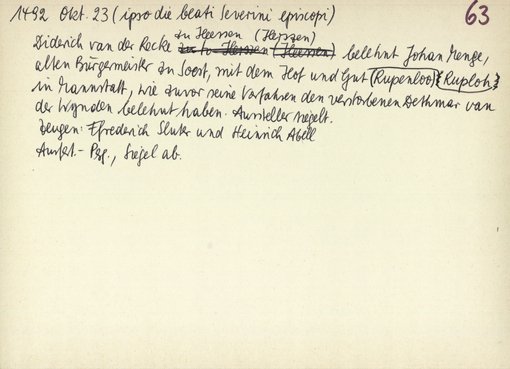 1492 Okt. 23 (ipso die beati Severini episcopi) 63
zu Heessen (Herssen)
Diderich van der Recke belehnt Johan Menge,
alten Bürgermeister zu Soest, mit dem Hof und Gut (Rupenloo) (Ruploh)
in Mannstatt, wie zuvor seine Vorfahren den verstorbenen Dethmar van
der Wynden belehnt haben. Aussteller siegelt.
Zeugen: Ffrederich Sluter und Heinrich Abell
Ausf.- Pgt., Siegel ab.